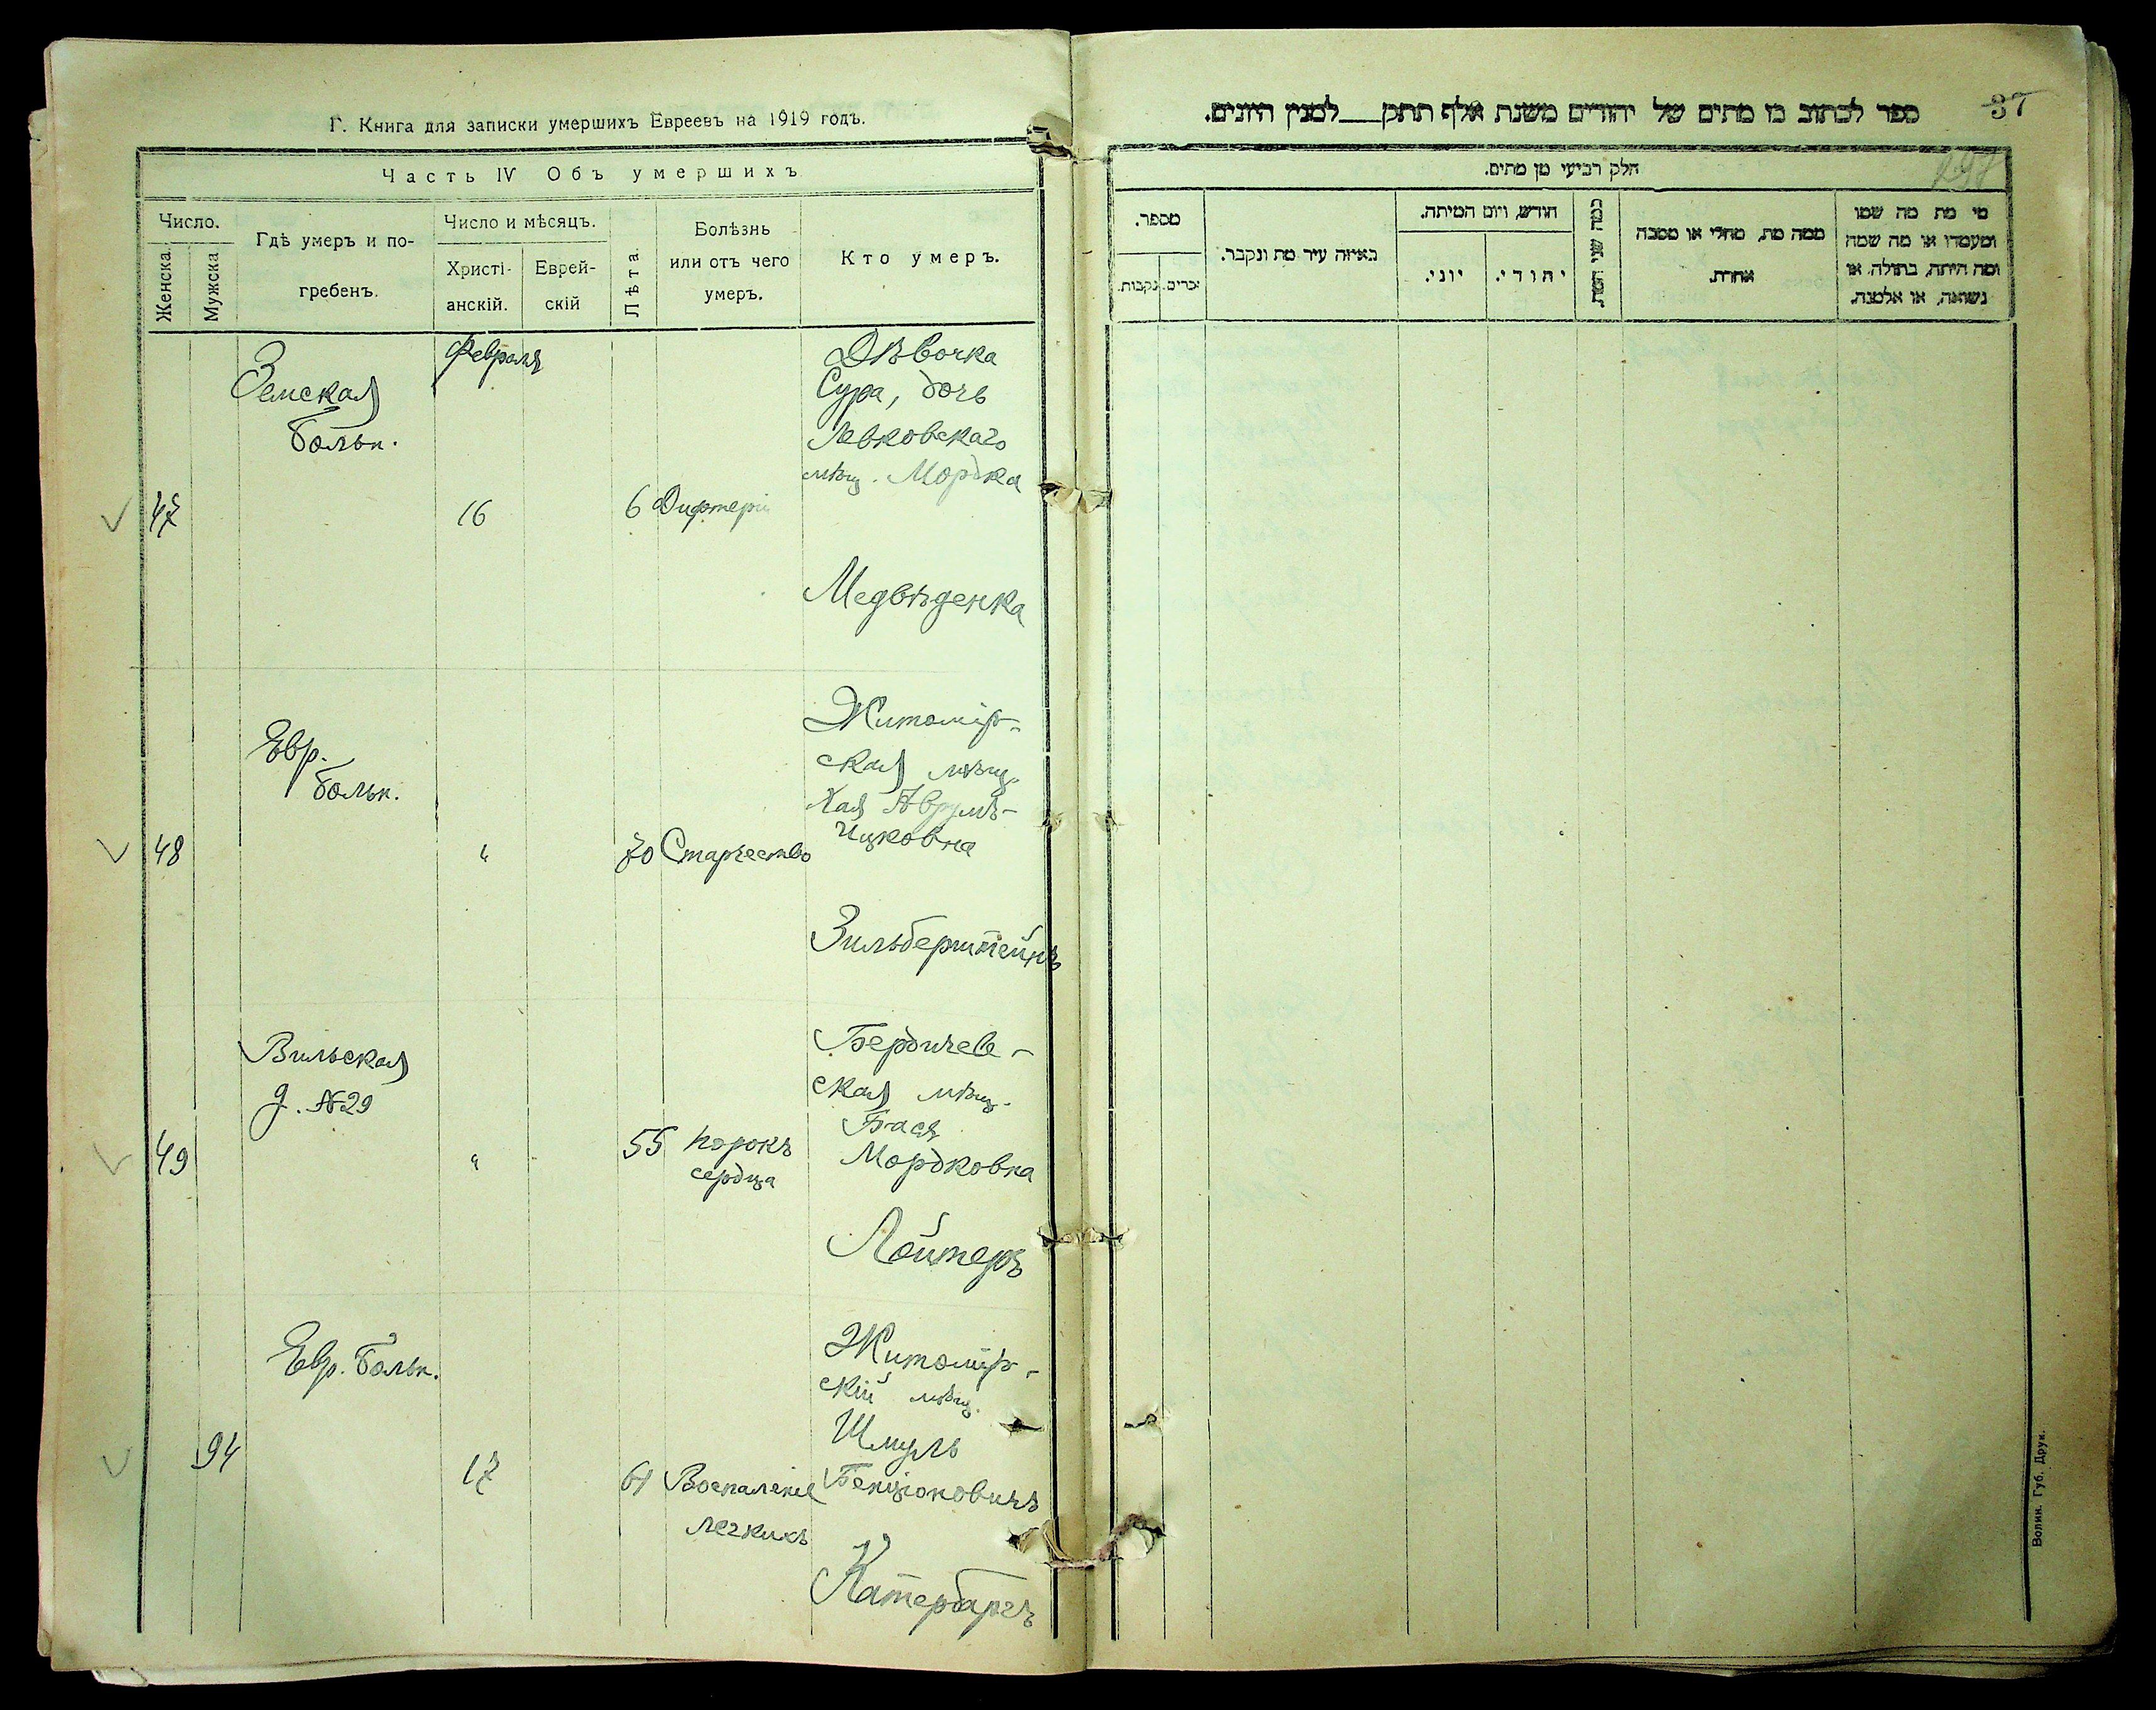 Г. Книга для записки умершихъ Евреевъ на 1919 годъ.
Часть IV Объ умершихъ
Число.
Женска
Мужска
Гдѣ умеръ и по-
гребенъ.
Число и мѣсяцъ.
Христі-
анскій.
Еврей-
скій
Лѣта
Болѣзнь
или отъ чего
умеръ.
Кто умеръ.
Февраля
47
Земская
Больн.
16
6
Дифтерія
Дѣвочка
Сура, дочь
Левковскаго
мѣщ. Мордка
Медвѣденка
48
Евр.
Больн.
"
70
Старчество
Житомір-
ская мѣщ.
Хая Аврумъ-
Ицковна
Зильберштейнъ
49
Вильская
д. №29
"
55
Порокъ
сердца
Бердичев-
ская мѣщ.
Бася
Мордковна
Лойтеръ
94
Евр. Больн.
17
61
Воспаленіе
легкихъ
Житомір-
скій мѣщ.
Шмуль
Бенціоновичъ
Катербаргъ
37
ספר לכתוב בו מתים של יהודים משנת אלף תתק למנין היונים.
297
חלק רביעי מן מתים.
מספר.
זכרים.
נקבות.
באיזה עיר מת ונקבר.
חודש, ויום המיתה.
יוני.
יהודי.
כמה שני המת.
ממה מת, מחלי או מסבה
אחרת.
מי מת מה שמו
ומעמדו או מה שמה
ומה היתה, בתולה, או
נשואה, או אלמנה.
Волин. Губ. Друк.